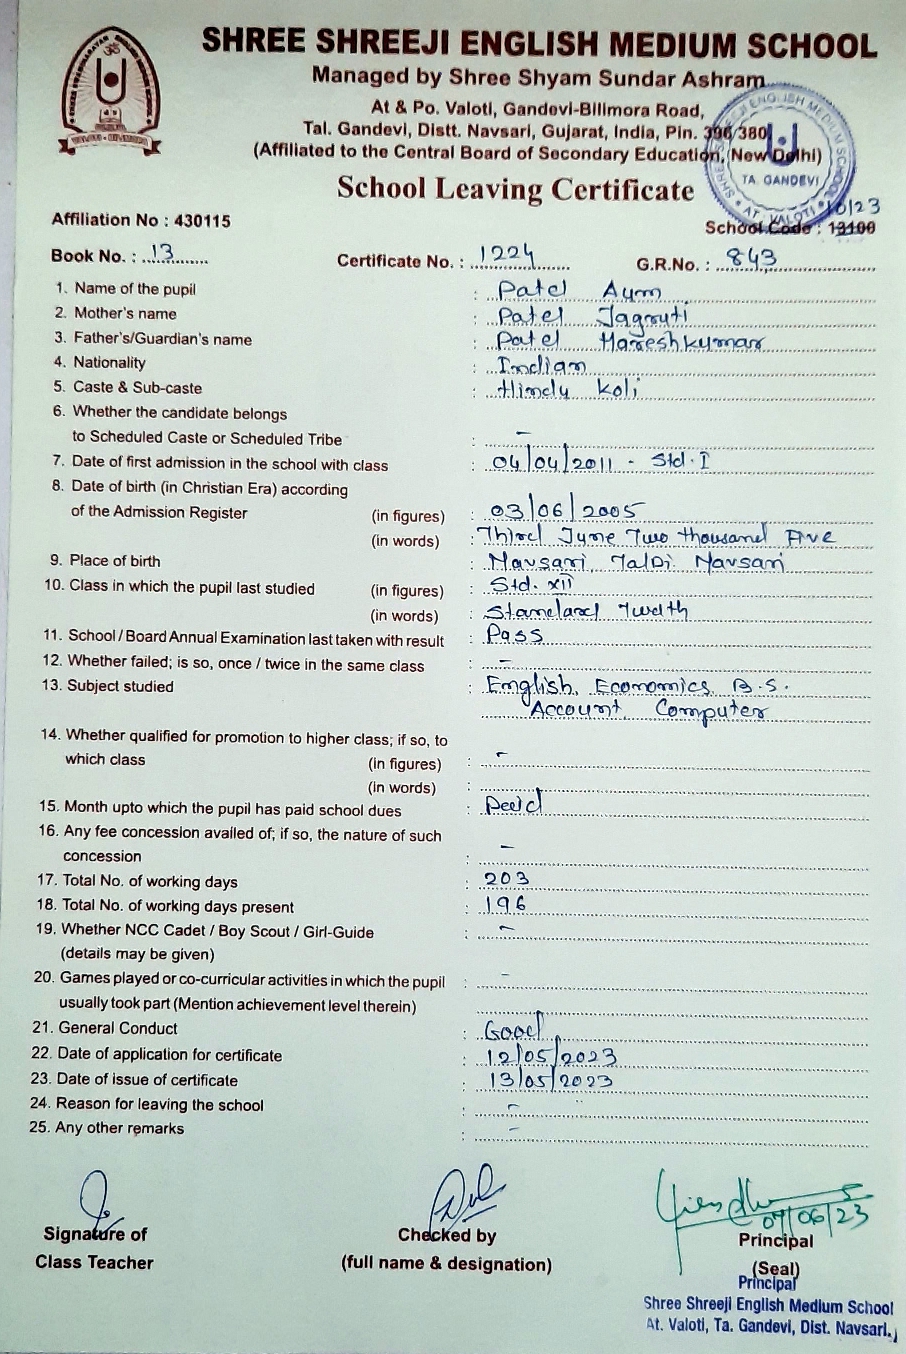 SHREE SHREEJI ENGLISH MEDIUM SCHOOL
Managed by Shree Shyam Sundar Ashram
At & Po. Valoti, Gandevi-Billmora Road,
Tal. Gandevi, Distt. Navsari, Gujarat, India, Pin. 396 380
(Affiliated to the Central Board of Secondary Education, New Delhi)
SHREE SHREEJI ENGLISH MEDIUM SCHOOL
TA. GANDEVI
AT. VALOTI
School Leaving Certificate
Affiliation No : 430115
10123
School Code : 13100
Book No. : 13 Certificate No. : 1224 G.R.No. : 843
1. Name of the pupil : Patel Aum
2. Mother's name : Patel Jagruti
3. Father's/Guardian's name : Patel Hareshkumar
4. Nationality : Indian
5. Caste & Sub-caste : Hindu Koli
6. Whether the candidate belongs
to Scheduled Caste or Scheduled Tribe : –
7. Date of first admission in the school with class : 04/04/2011 - Std. I
8. Date of birth (in Christian Era) according
of the Admission Register (in figures) : 03/06/2005
(in words) : Third June Two thousand Five
9. Place of birth : Navsari, Ta/Di. Navsari
10. Class in which the pupil last studied (in figures) : Std. XII
(in words) : Standard Twelth
11. School / Board Annual Examination last taken with result : Pass
12. Whether failed; is so, once / twice in the same class : –
13. Subject studied : English, Economics, B.S.
Account, Computer
14. Whether qualified for promotion to higher class; if so, to
which class (in figures) : –
(in words) :
15. Month upto which the pupil has paid school dues : Paid
16. Any fee concession availed of; if so, the nature of such
concession : –
17. Total No. of working days : 203
18. Total No. of working days present : 196
19. Whether NCC Cadet / Boy Scout / Girl-Guide : –
(details may be given)
20. Games played or co-curricular activities in which the pupil : –
usually took part (Mention achievement level therein)
21. General Conduct : Good
22. Date of application for certificate : 12/05/2023
23. Date of issue of certificate : 13/05/2023
24. Reason for leaving the school : –
25. Any other remarks : –
07/06/23
Signature of Checked by Principal
Class Teacher (full name & designation) (Seal)
Principal
Shree Shreeji English Medium School
At. Valoti, Ta. Gandevi, Dist. Navsari.